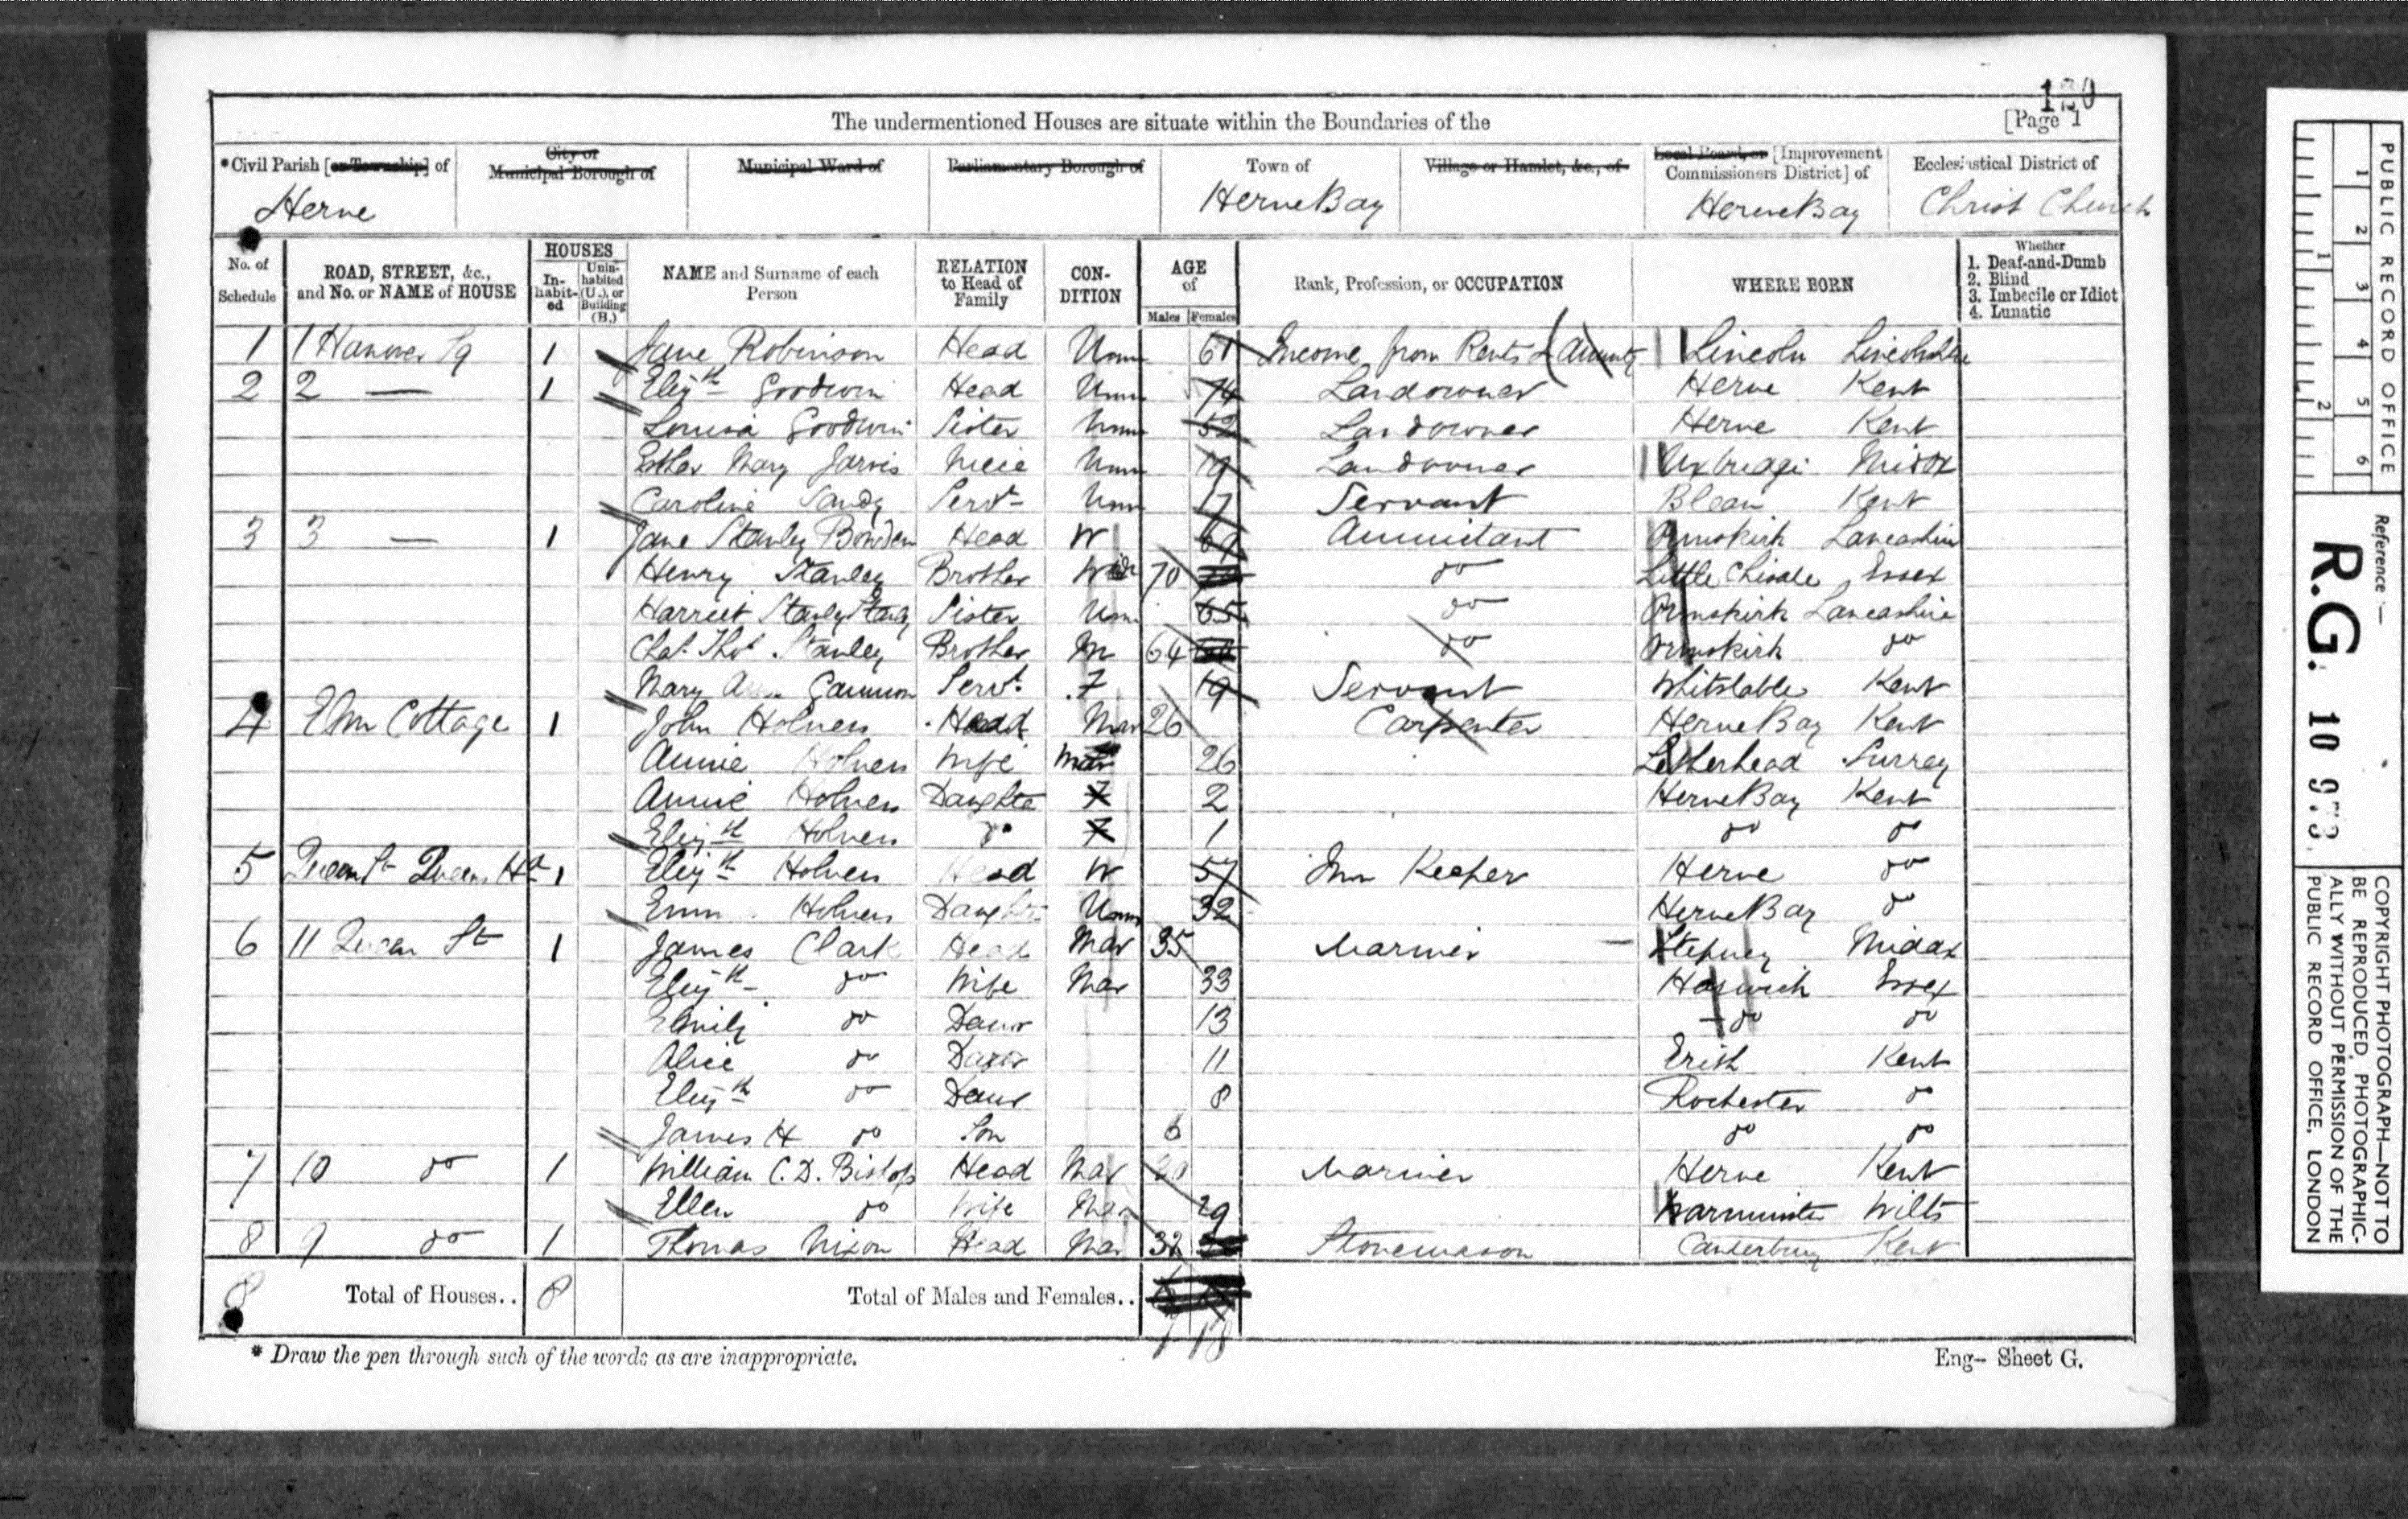 120
The undermentioned Houses are situate within the Boundaries of the [Page 1
*Civil Parish [or Township] of City or Municipal Borough of Municipal Ward of Parliamentary Borough of Town of Village or Hamlet, &c., of Local Board, or [Improvement Commissioners District] of Ecclesiastical District of
Herne HerneBay HerneBay Christ Church
No. of Schedule ROAD, STREET, &c., and No. or NAME of HOUSE HOUSES Inhabited Uninhabited (U.), or Building (B.) NAME and Surname of each Person RELATION to Head of Family CONDITION AGE of Males Females Rank, Profession, or OCCUPATION WHERE BORN Whether 1. Deaf-and-Dumb 2. Blind 3. Imbecile or Idiot 4. Lunatic
1 1 Hanover Sq 1 Jane Robinson Head Unm 61 Income from Rents & Lincoln Lincolnshire
2 2 — 1 Elizth Goodwin Head Unm 74 Landowner Herne Kent
Louisa Goodwin Sister Unm 52 Landowner Herne Kent
Esther Mary Jarvis Niece Unm 19 Landowner Uxbridge Middx
Caroline Sandy Servt Unm 17 Servant Blean Kent
3 3 — 1 Jane Stanley Bowden Head W 69 Annuitant Ormskirk Lancashire
Henry Stanley Brother Wid 70 do Little Essex
Harriet Stanley Sister Unm 65 do Ormskirk Lancashire
Chas. Thos. Stanley Brother M 64 do Ormskirk do
Mary Gammon Servt. 19 Servant Whitstable Kent
4 Elm Cottage 1 John Holness Head Mar 26 Carpenter HerneBay Kent
Annie Holness Wife Mar 26 Letherhead Surrey
Annie Holness Daughter 2 HerneBay Kent
Elizth Holness do 1 do do
5 Queen St Queens Ht 1 Elizth Holness Head W 57 Inn Keeper Herne do
Holness Daughter Unm 32 HerneBay do
6 11 Queen St 1 James Clark Head Mar 35 Mariner Stepney Middx
Elizth do Wife Mar 33 Harwich Essex
Emily do Daur 13 do do
Alice do Daur 11 Erith Kent
Elizth do Daur 8 Rochester do
James H do Son 6 do do
7 10 do 1 William C. D. Bishop Head Mar Mariner Herne Kent
Ellen do Wife Mar 29 Warminster Wilts
8 9 do 1 Thomas Nixon Head Mar 32 Stonemason Canterbury Kent
8 Total of Houses.. 8 Total of Males and Females..
7 18
* Draw the pen through such of the words as are inappropriate. Eng- Sheet G.
PUBLIC RECORD OFFICE
1 2 3 4 5 6
1 2
Reference:—
R.G. 10 973.
COPYRIGHT PHOTOGRAPH—NOT TO
BE REPRODUCED PHOTOGRAPHIC-
ALLY WITHOUT PERMISSION OF THE
PUBLIC RECORD OFFICE, LONDON